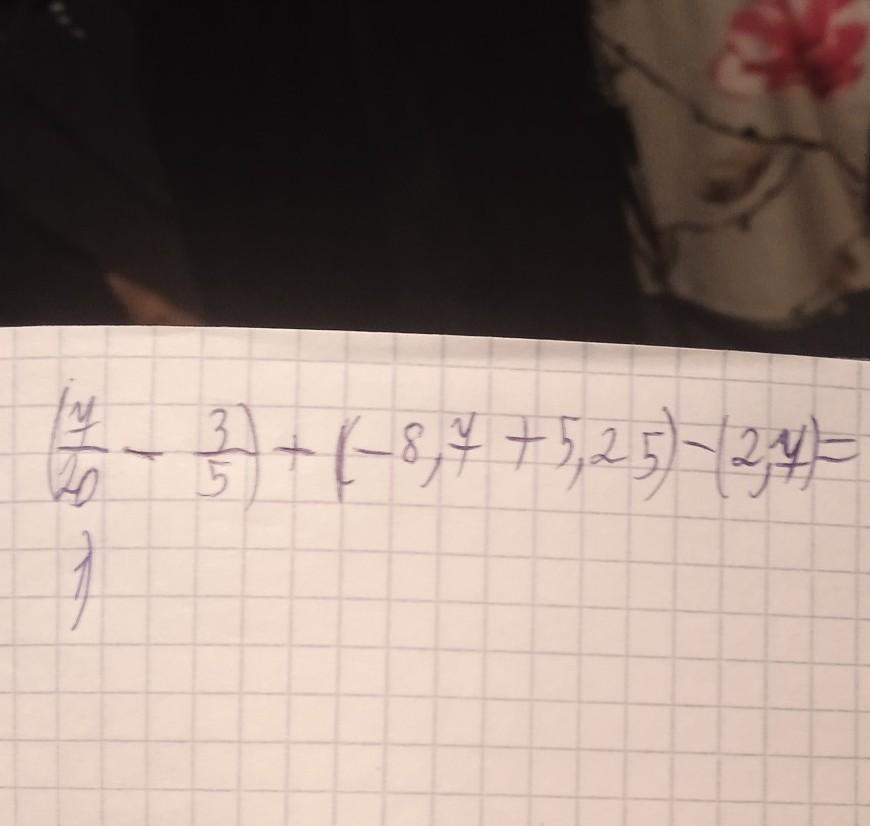 (7/20 - 3/5) + (-8,7 + 5,25) - (2,7) =
1)